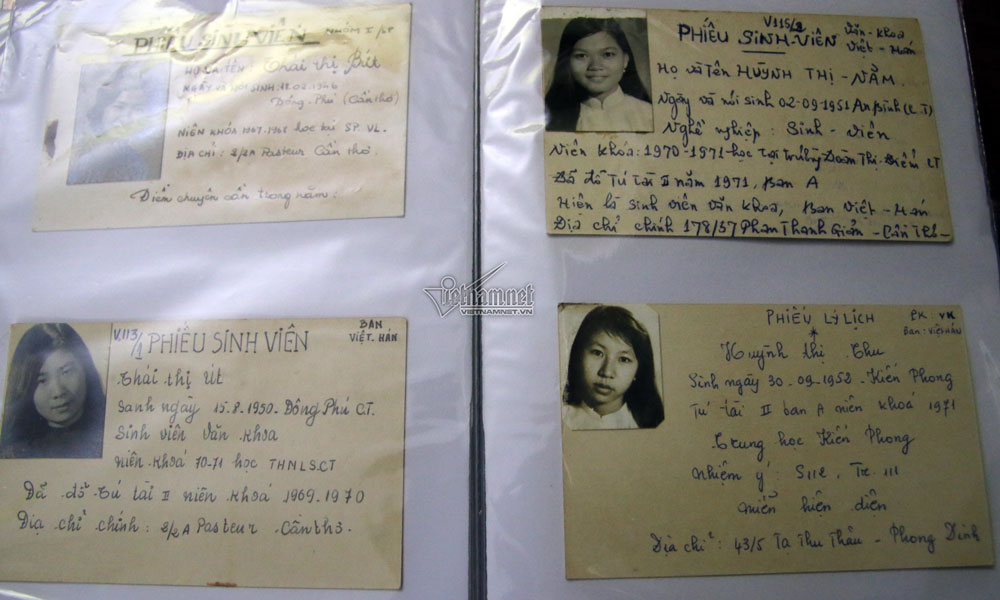 PHIẾU SINH VIÊN
NHÓM I / SP
HỌ VÀ TÊN: Thái thị Bút
NGÀY VÀ NƠI SINH:
Đông Phú (Cần thơ)
NIÊN KHÓA 1967-1968 học tại SP. VL.
ĐỊA CHỈ: 2/2A Pasteur Cần thơ.
Điểm chuyên cần trong năm:
V115/2
Văn-Khoa
Việt-Hán
PHIẾU SINH-VIÊN
Họ và Tên HUỲNH THỊ-NĂM
Ngày và nơi sinh 02-09-1951 An Bình (C.T)
Nghề nghiệp: Sinh-Viên
Niên khóa: 1970-1971-học tại trường Đoàn Thị Điểm CT
Đã đỗ Tú tài II năm 1971, Ban A
Hiện là sinh viên văn khoa, Ban Việt-Hán
Địa chỉ chính 178/57 Phan Thanh Giản-Cần Thơ-
vietnamnet
VIETNAMNET.VN
V.113/1
PHIẾU SINH VIÊN
BAN
VIỆT. HÁN
Thái thị Út
Sanh ngày 15.8.1950. Đông Phú C.T.
Sinh viên Văn Khoa
Niên Khoá 70-71 học THNLS.CT
Đã đỗ Tú tài II niên khoá 1969-1970
Địa chỉ chính: 2/2A Pasteur Cần thơ.
PHIẾU LÝ LỊCH
VK
Ban: VIỆT HÁN
Huỳnh thị Thu
Sinh ngày 30-09-1952-Kiến Phong
Tú tài II ban A niên khoá 1971
Trung học Kiến Phong
Nhiệm ý: S112, Tr. 111
Miễn hiện diện
Địa chỉ: 43/5 Tạ Thu Thâu-Phong Dinh